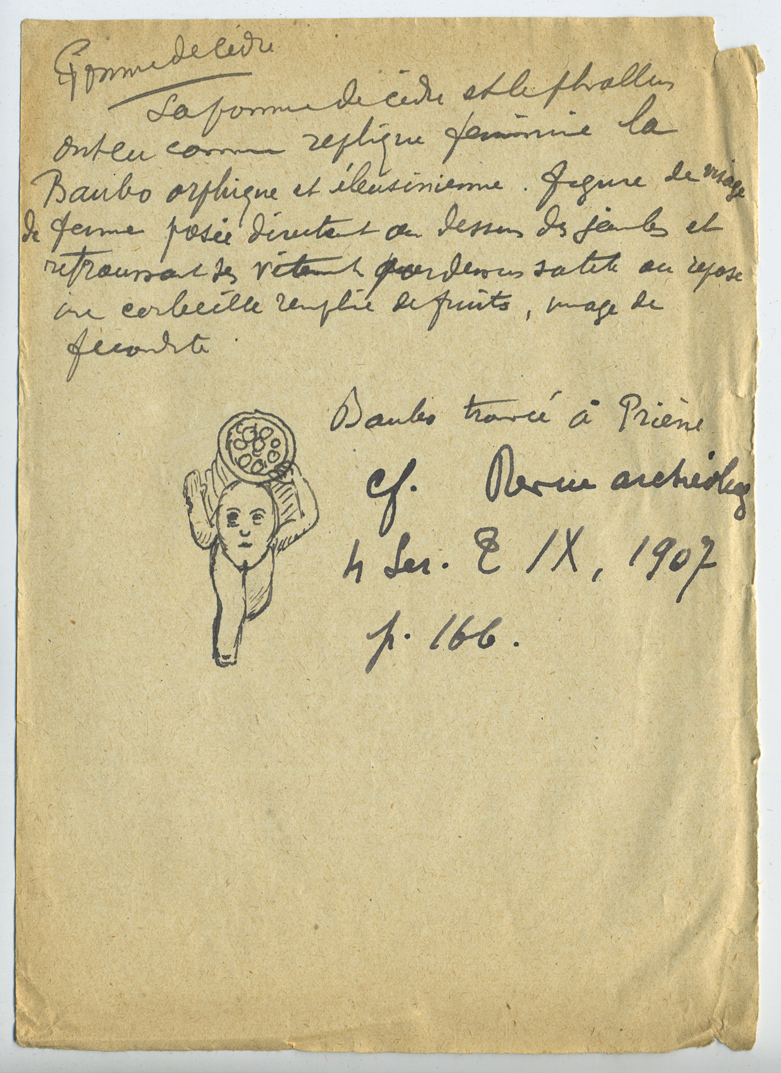 Pomme de cèdre
La pomme de cèdre et le phallus
ont eu comme replique feminine la
Baubo orphique et éleusinienne. figure de visage
de femme posée directent au dessus des jambes et
retroussant ses vetements par dessus sa tete ou repose
une corbeille remplie de fruits, image de
fecondite
Baubo trouvée à Priène
cf. Revue archéolog
4 Ser. T IX, 1907
p. 166.